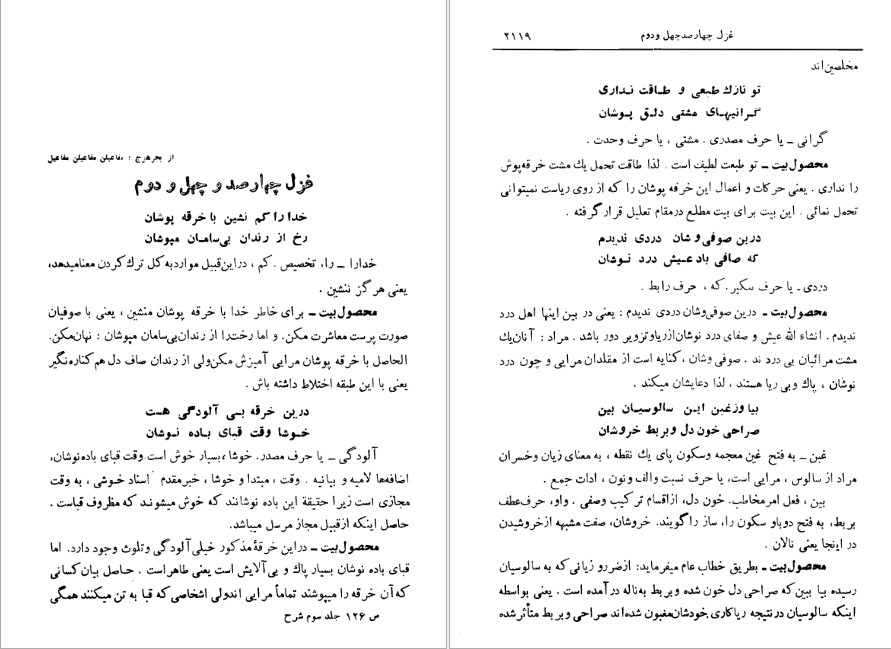 از بحرهزج : مفاعیلن مفاعیلن مفاعیل
غزل چهارصد و چهل و دوم
خدا را کم نشین با خرقه پوشان
رخ از رندان بی‌سامان مپوشان
خدارا ــ را، تخصیص . کم ، دراین‌قبیل مواردبه کل ترك کردن معنامیدهد،
یعنی هرگز ننشین .
محصول‌بیت ــ برای خاطر خدا با خرقه پوشان منشین ، یعنی با صوفیان
صورت پرست معاشرت مکن. و اما رخت‌را از رندان‌بی‌سامان مپوشان : نهان‌مکن.
الحاصل با خرقه پوشان مرایی آمیزش مکن‌ولی از رندان صاف دل هم‌کناره‌نگیر
یعنی با این طبقه اختلاط داشته باش .
درین خرقه بسی آلودگی هست
خوشا وقت قبای باده نوشان
آلودگی ــ یا حرف مصدر. خوشا ، بسیار خوش است وقت قبای باده‌نوشان،
اضافه‌ها لامیه و بیانیه . وقت ، مبتدا و خوشا ، خبرمقدم اسناد خوشی ، به وقت
مجازی است زیرا حقیقة این باده نوشانند که خوش میشوند که مظروف قباست .
حاصل اینکه ازقبیل مجاز مرسل میباشد.
محصول‌بیت ــ دراین خرقهٔ مذکور خیلی‌آلودگی وتلوث وجود دارد. اما
قبای باده نوشان بسیار پاك و بی‌آلایش است یعنی طاهراست . حاصل بیان‌کسانی
که‌آن خرقه را میپوشند تماماً مرایی اندولی اشخاصی که قبا به تن میکنند همگی
ص ۱۲۶ جلد سوم شرح
غزل چهارصدچهل ودوم ۲۱۱۹
مخلصین‌اند
تو نازك طبعی و طاقت نداری
گرانیهای مشتی دلق پوشان
گرانی ــ یا حرف مصدری . مشتی ، یا حرف وحدت .
محصول‌بیت ــ تو طبعت لطیف است . لذا طاقت تحمل یك مشت خرقه‌پوش
را نداری . یعنی حرکات و اعمال این خرقه پوشان را که از روی ریاست نمیتوانی
تحمل نمائی . این بیت برای بیت مطلع درمقام تعلیل قرار گرفته .
درین صوفی‌وشان دردی ندیدم
که صافی باد عیش درد نوشان
دردی ــ یا حرف سکیر. که ، حرف رابط .
محصول‌بیت ــ درین صوفی‌وشان دردی ندیدم : یعنی در بین اینها اهل درد
ندیدم . انشاء الله عیش و صفای درد نوشان‌ازریاوتزویر دور باشد . مراد : آنان‌یك
مشت مرائیان بی درد ند . صوفی وشان ، کنایه است از مقلدان مرایی و چون درد
نوشان ، پاك وبی ریا هستند ، لذا دعایشان میکند .
بیا وزغبن این سالوسیان بین
صراحی خون دل و بربط خروشان
غبن ــ به فتح غین معجمه وسکون پای یك نقطه ، به معنای زیان وخسران
مراد از سالوس ، مرایی است، یا حرف نسبت والف ونون ، ادات جمع .
بین ، فعل امرمخاطب. خون دل، ازاقسام ترکیب وصفی . واو، حرف‌عطف
بربط، به فتح دوباو سکون را، ساز را گویند. خروشان، صفت مشبهه ازخروشیدن
در اینجا یعنی نالان .
محصول‌بیت ــ بطریق خطاب عام میفرماید: ازضررو زیانی که به سالوسیان
رسیده بیا ببین‌که صراحی دل خون شده و بربط به‌ناله درآمده است . یعنی بواسطه
اینکه سالوسیان درنتیجه ریاکاری خودشان‌مغبون شده‌اند صراحی و بربط متأثرشده